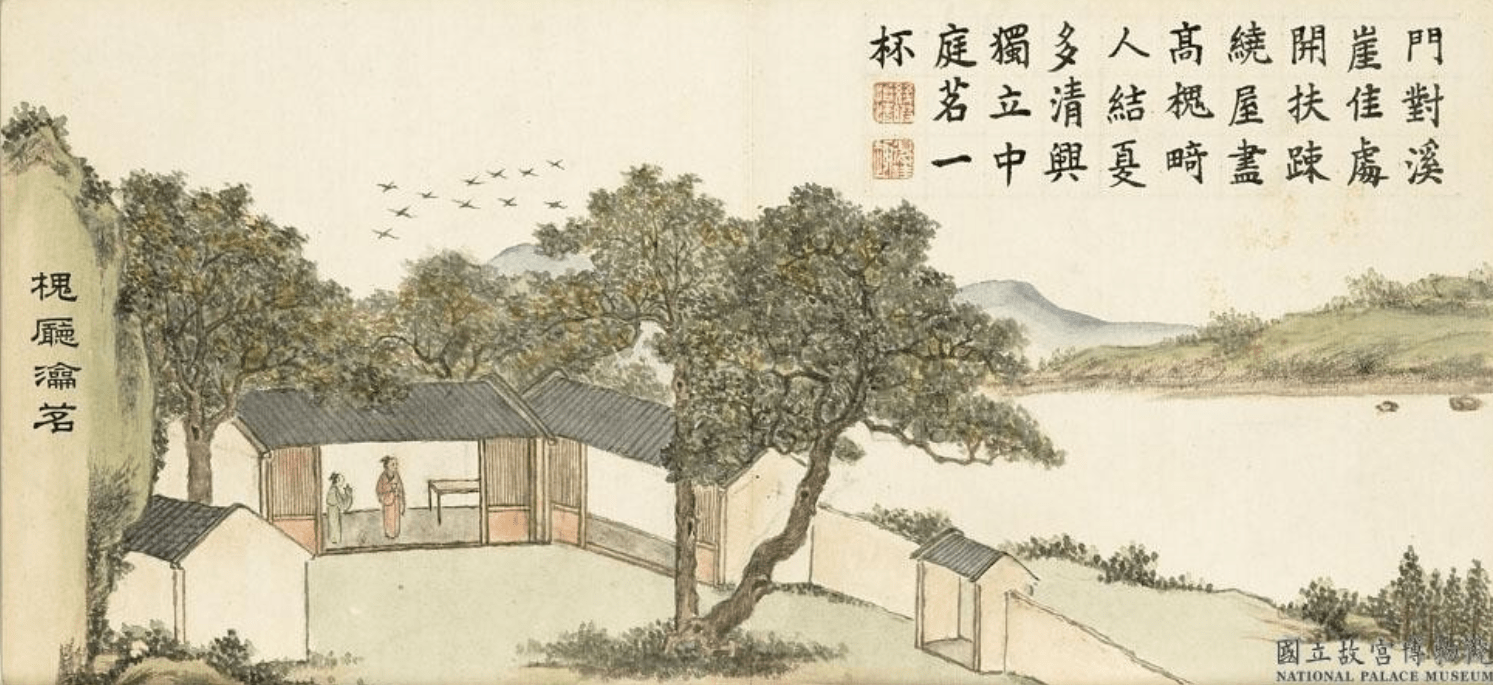 門對溪
崖佳處
開扶踈
繞屋盡
髙槐畸
人結夏
多清興
獨立中
庭茗一
杯
槐廳瀹茗
國立故宮博物院
NATIONAL PALACE MUSEUM